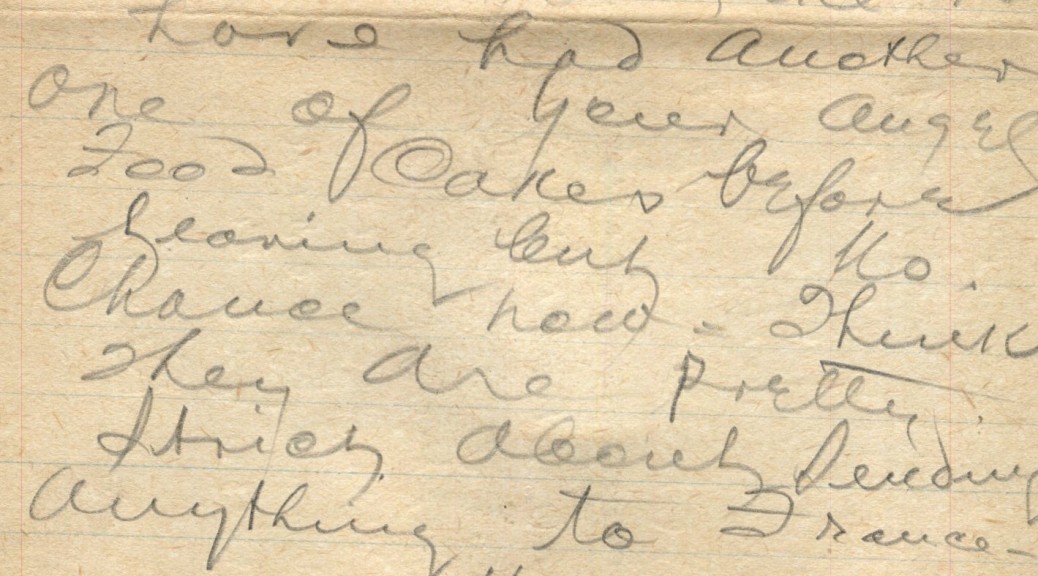 have had another
one of your angel
Food Cakes before
leaving but no
Chance now - Think
They are pretty
Strict about sending
anything to France -